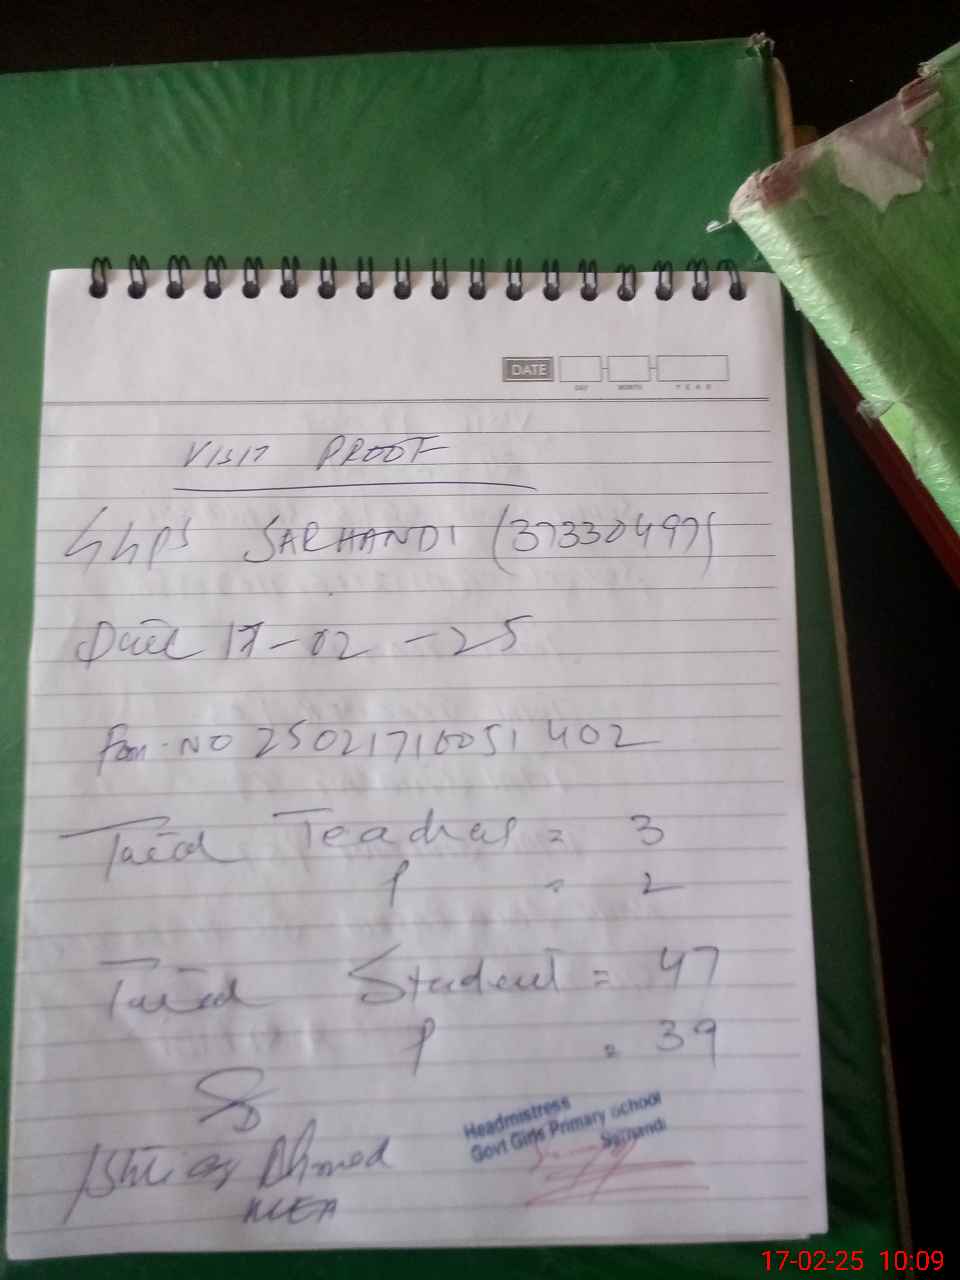 DATE
DAY MONTH YEAR
VISIT PROOF
GGPS SARHANDI (37330497)
Date 17-02-25
Form NO 25021710051402
Total Teacher = 3
P = 2
Total Student = 47
P = 39
Ahmed
MEA
Headmistress
Govt Girls Primary School
Sarhandi
17-02-25 10:09